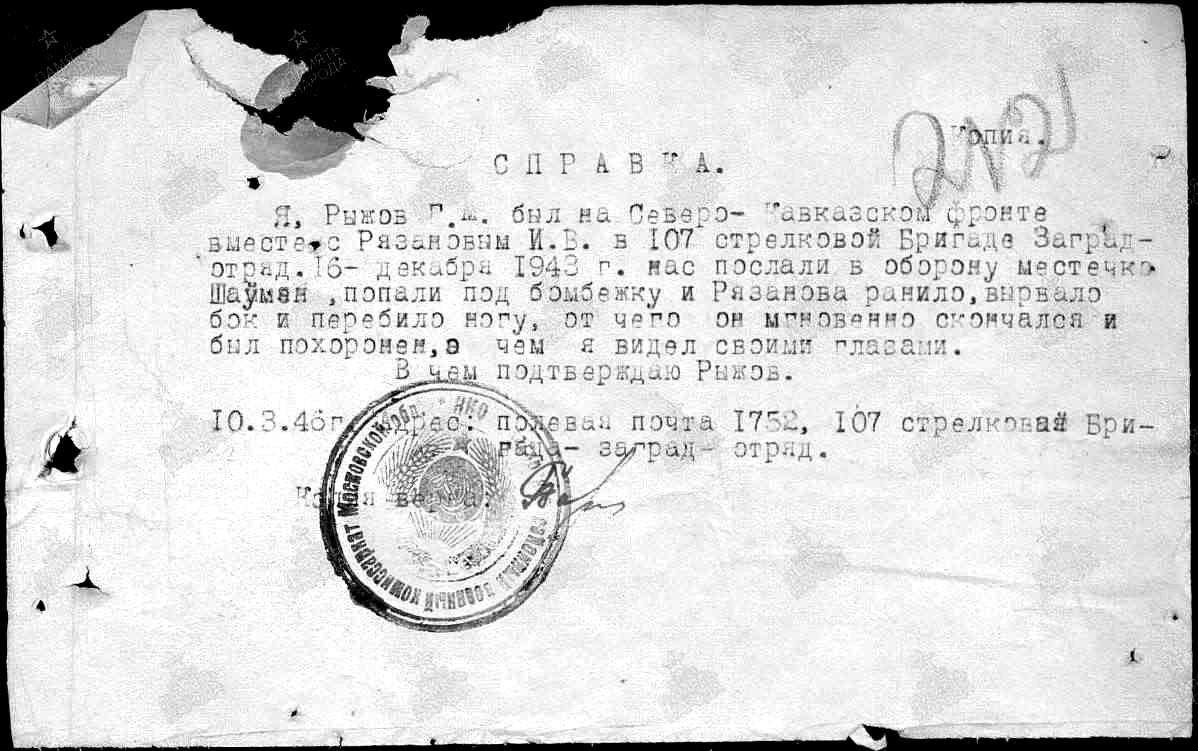 Копия.
СПРАВКА.
Я, Рыжов Г.М. был на Северо- Кавказском фронте
вместе с Рязановым И.В. в 107 стрелковой Бригаде Заград-
отряд. 16- декабря 1943 г. нас послали в оборону местечко
Шаумян ,попали под бомбежку и Рязанова ранило,вырвало
бок и перебило ногу, от чего он мгновенно скончался и
был похоронен,о чем я видел своими глазами.
В чем подтверждаю Рыжов.
10.3.46г. Адрес: полевая почта 1752, 107 стрелковая Бри-
гада- заград- отряд.
Копия верна:
НКО
районный военный комиссариат Московской обл.